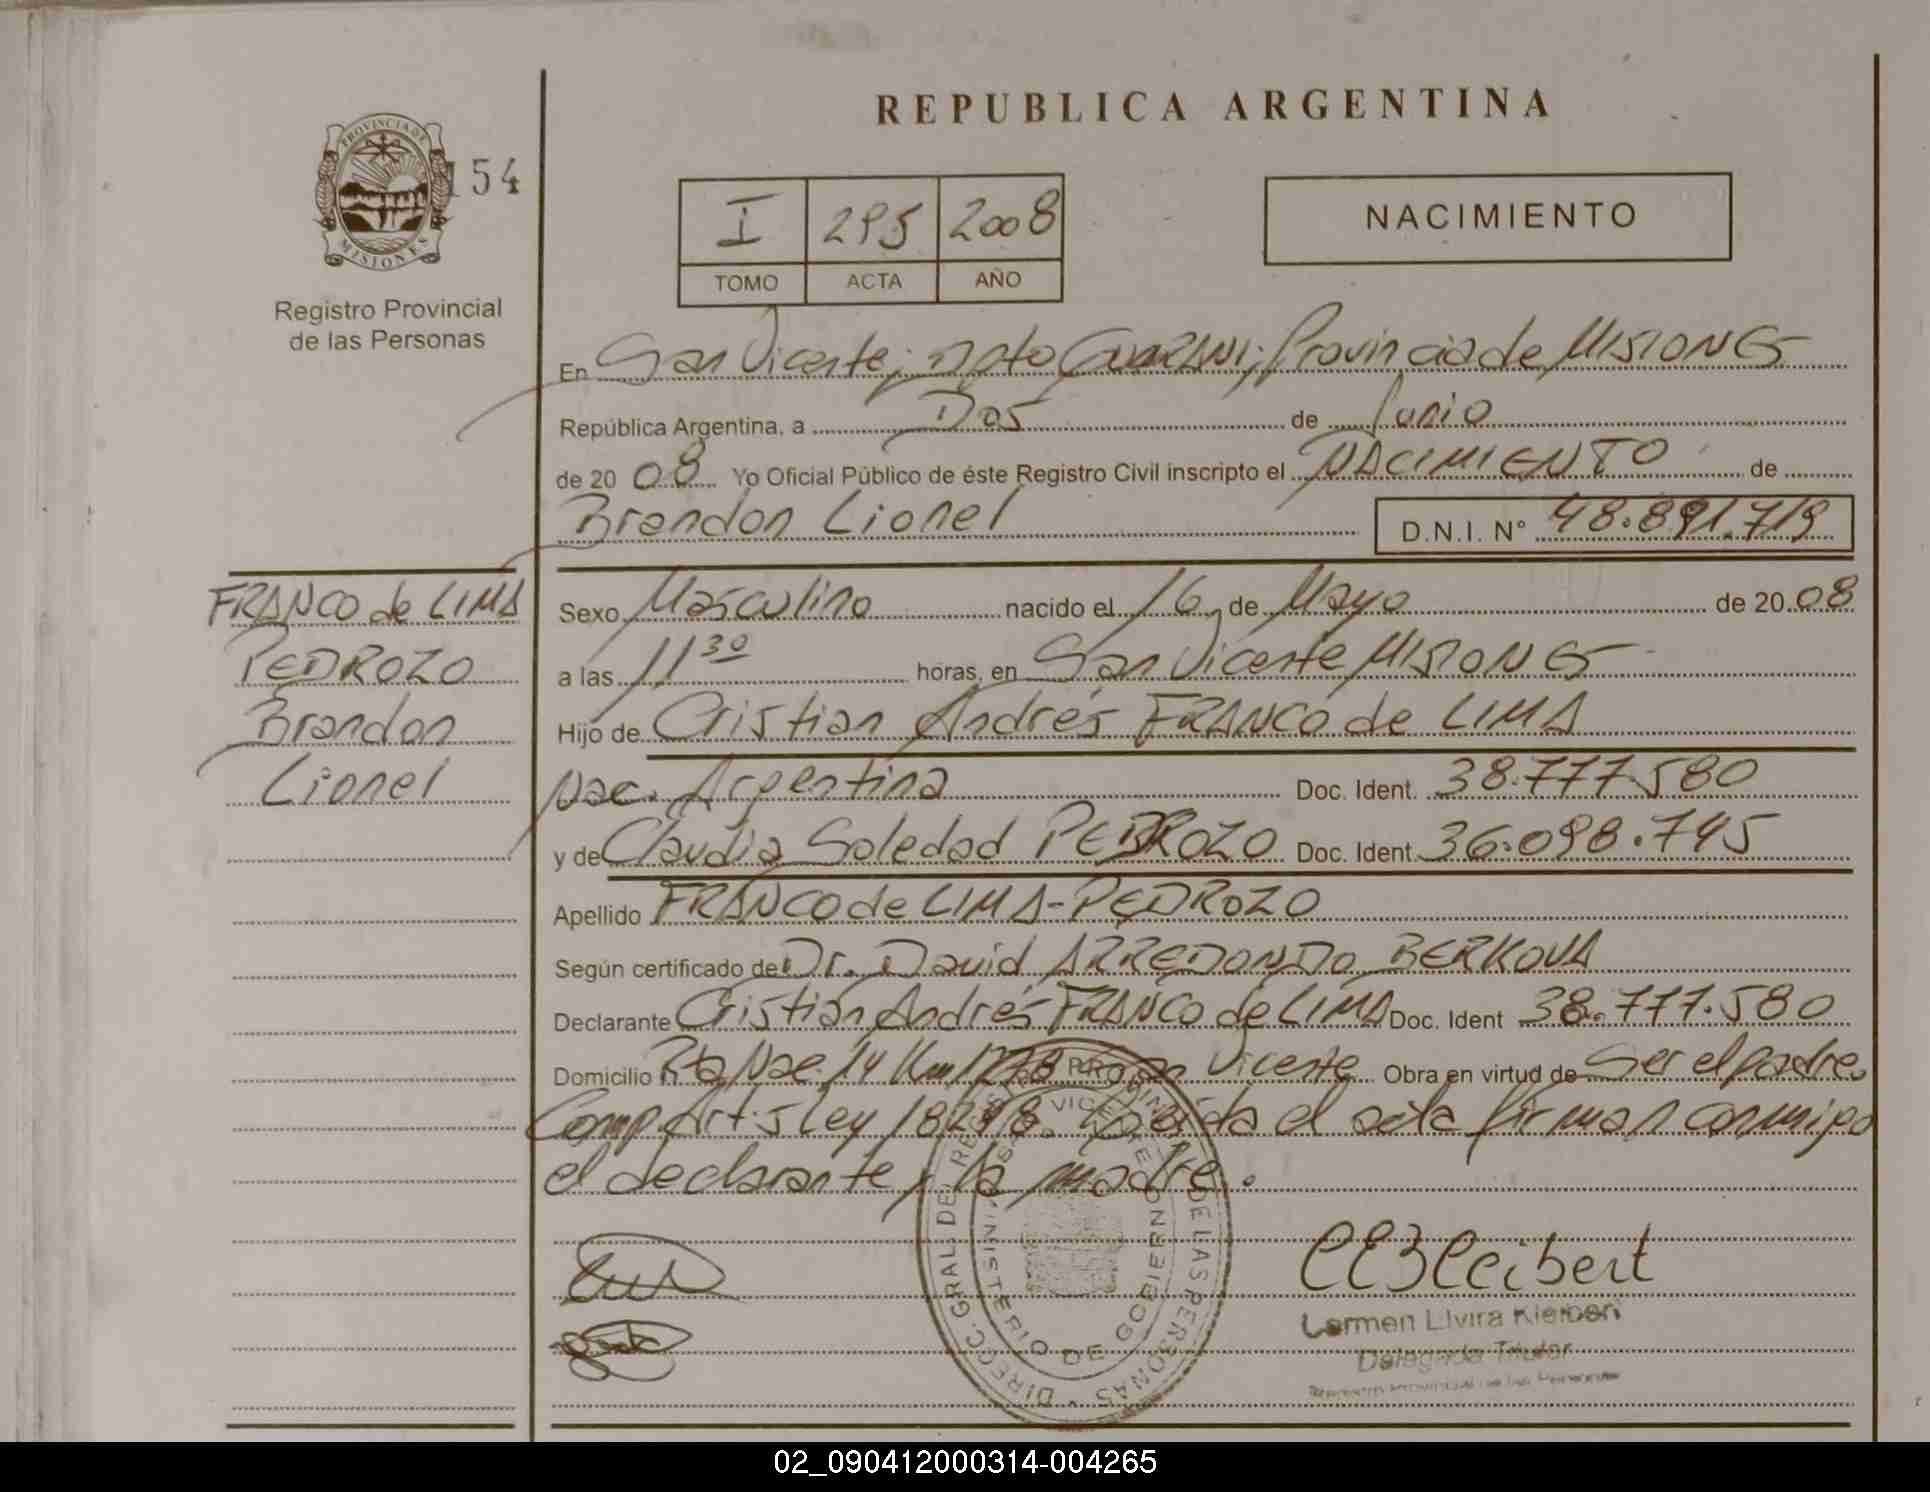 REPUBLICA ARGENTINA
PROVINCIA DE MISIONES
154
Registro Provincial
de las Personas
I 295 2008
TOMO ACTA AÑO
NACIMIENTO
En San Vicente; Dpto GUARANI; Provincia de MISIONES
República Argentina, a Dos de Junio
de 2008 Yo Oficial Público de éste Registro Civil inscripto el NACIMIENTO de
Brandon Lionel D.N.I. Nº 48.891.719
FRANCO de LIMA
PEDROZO
Brandon
Lionel
Sexo Masculino nacido el 16 de Mayo de 2008
a las 11 30 horas, en San Vicente MISIONES
Hijo de Cristian Andrés FRANCO de LIMA
Nac. Argentina Doc. Ident. 38.777.580
y de Claudia Soledad PEDROZO Doc. Ident. 36.098.745
Apellido FRANCO de LIMA-PEDROZO
Según certificado de Dr. David ARREDONDO BERKOVA
Declarante Cristian Andrés FRANCO de LIMA Doc. Ident 38.777.580
Domicilio Rta Nac. 14 Km San Vicente Obra en virtud de Ser el padre
Comp. Art. 5 Ley 18248. Leída el acta firman conmigo
el declarante y la madre.
DIRECC. GRAL. DEL REGISTRO PROVINCIAL DE LAS PERSONAS
MINISTERIO DE GOBIERNO
Carmen Elvira
Delegada Titular
Registro Provincial de las Personas
02_090412000314-004265